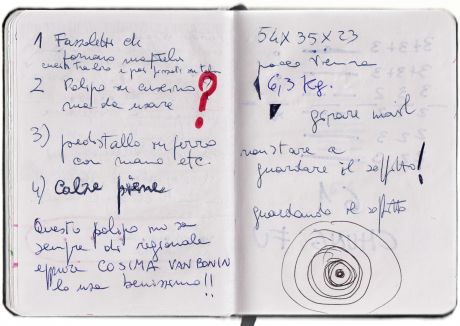 1 Fazzoletti di
2 Polipo su cuscino ?
ma da usare
3) piedistallo in ferro
con mano etc.
4) Calze piene
Questo polipo mi sa
sempre di regionale
eppure COSIMA VAN BONIN
lo usa benissimo!!
54 X 35 X 23
pacco Vienna
6,3 Kg.
non stare a
guardare il soffitto!
guardando il soffitto